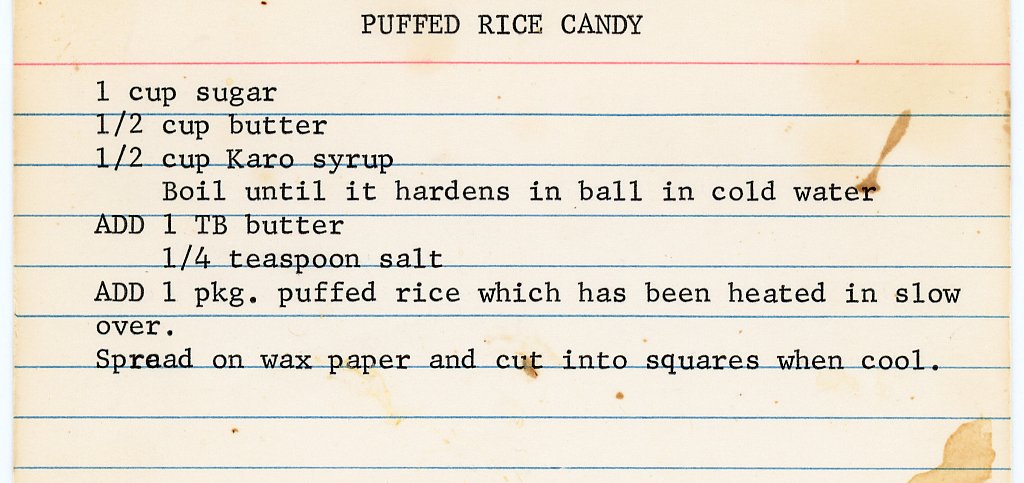 PUFFED RICE CANDY
1 cup sugar
1/2 cup butter
1/2 cup Karo syrup
Boil until it hardens in ball in cold water
ADD 1 TB butter
1/4 teaspoon salt
ADD 1 pkg. puffed rice which has been heated in slow
over.
Spread on wax paper and cut into squares when cool.